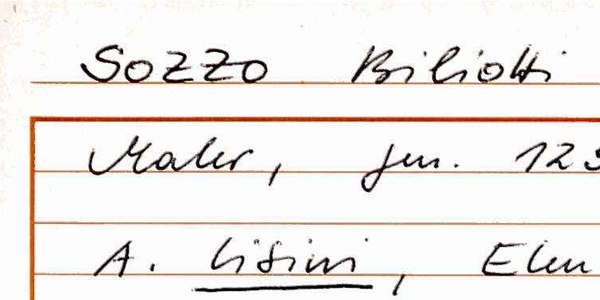 Sozzo Biliotti
Maler, gen. 123
A. Lisini, Elen